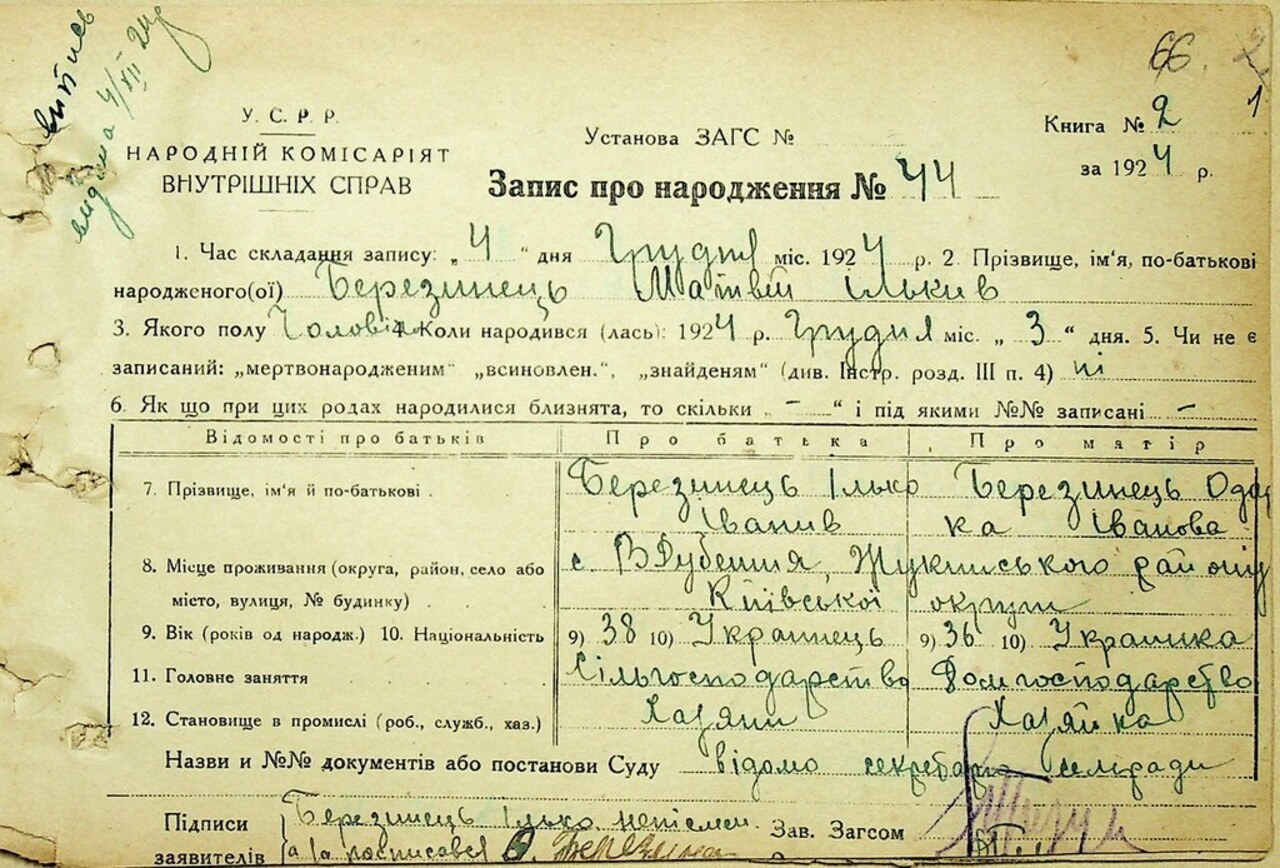 витпсь
видана 4/XII 24 р
66.
1
У. С. Р. Р.
НАРОДНІЙ КОМІСАРІЯТ
ВНУТРІШНІХ СПРАВ
Установа ЗАГС №
Книга № 2
за 1924 р.
Запис про народження № 44
1. Час складання запису: „4“ дня Грудня міс. 1924 р. 2. Прізвище, ім'я, по-батькові
народженого(ої) Березинець Матвій Ільків
3. Якого полу Чоловік 4. Коли народився (лась): 1924 р. Грудня міс. „3“ дня. 5. Чи не є
записаний: „мертвонародженим“ „всиновлен.“, „знайденям“ (див. Інстр. розд. III п. 4) ні
6. Як що при цих родах народилися близнята, то скільки „-“ і під якими №№ записані -
Відомості про батьків Про батька Про матір
7. Прізвище, ім'я й по-батькові. Березинець Ілько Березинець Ода
Іванив ка Іванова
8. Місце проживання (округа, район, село або с. В Дубечня, Жукинського району
місто, вулиця, № будинку) Київської округи
9. Вік (років од народж.) 10. Національність 9) 38 10) Українець 9) 36 10) Українка
11. Головне заняття Сільгосподарство Домгосподарство
12. Становище в промислі (роб., служб., хаз.) Хазяин Хазяйка
Назви и №№ документів або постанови Суду відомо секретарю сельради
Підписи Березинець Ілько неписмен. Зав. Загсом
заявителів а за росписався О. Березина